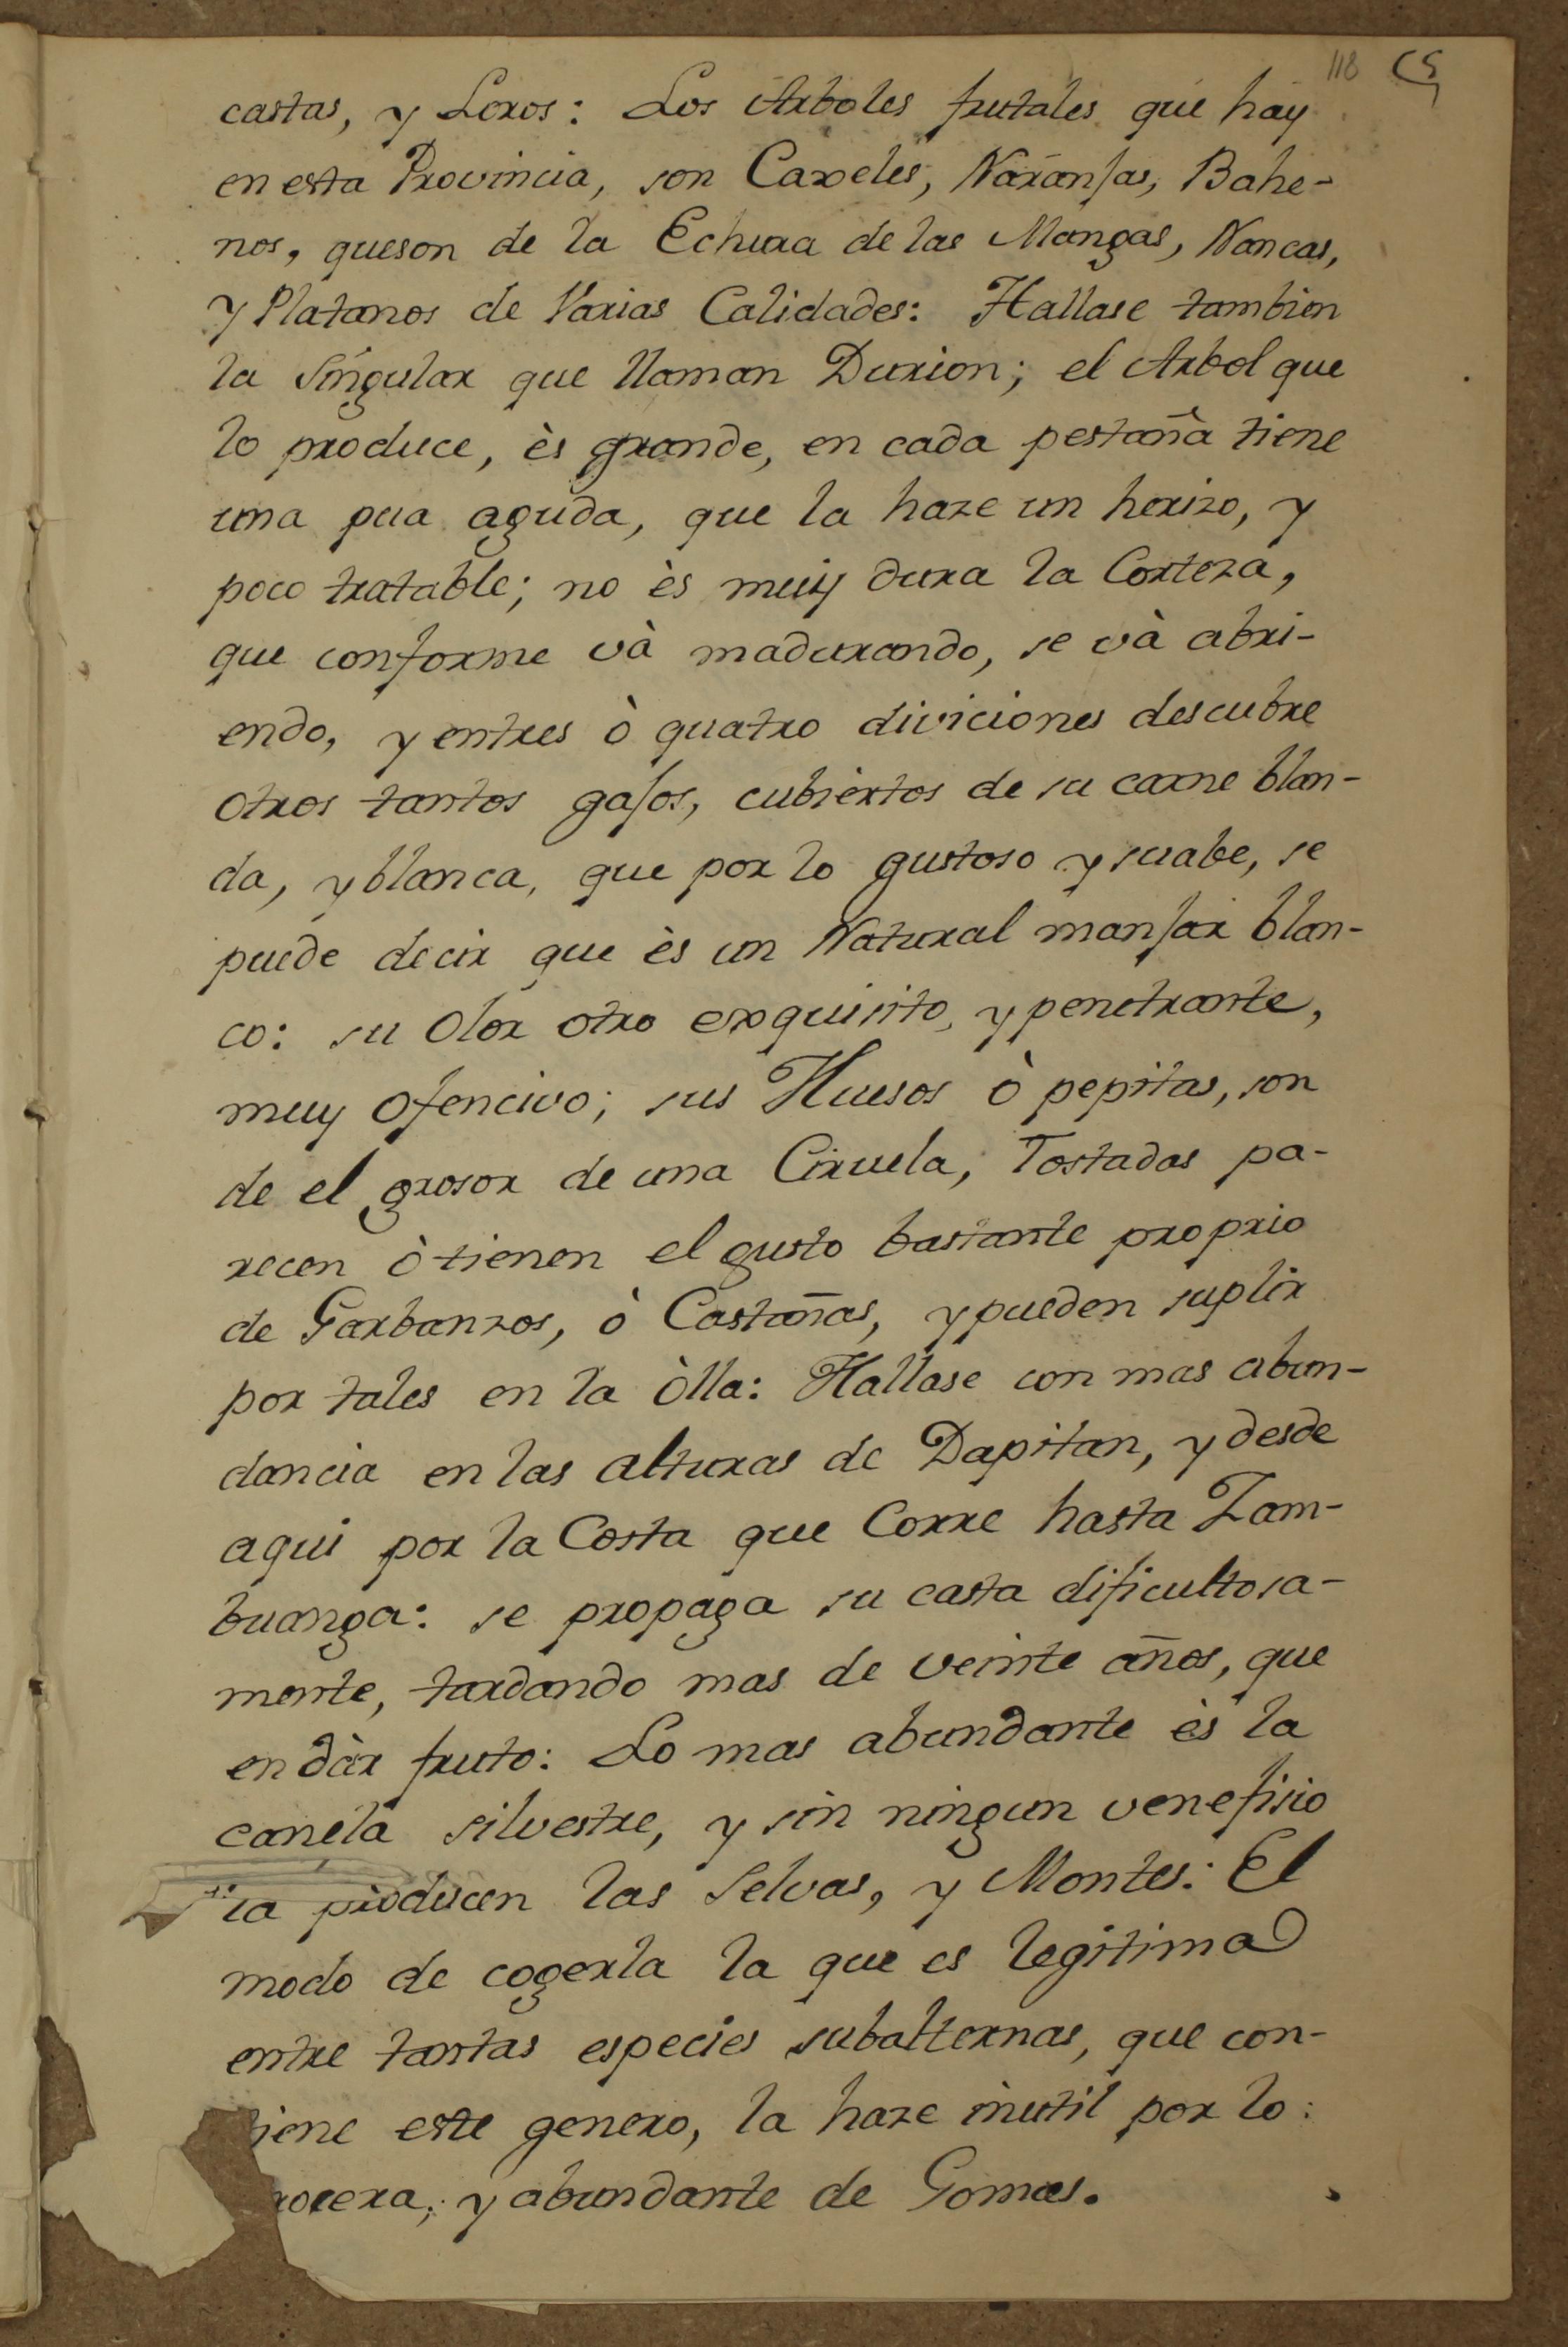 118
castas, y Loros: Los Arboles frutales que hay
en esta Provincia, son Caxeles, Naranjas, Bahe-
nos, queson de la Echura de las Mangas, Nancas,
y Platanos de Varias Calidades: Hallase tambien
la Singular que llaman Durion; el Arbol que
lo produce, ès grande, en cada pestaña tiene
una pua aguda, que la haze un herizo, y
poco tratable; no ès muy dura la Corteza,
que conforme và madurando, se và abri-
endo, y entres ò quatro diviciones descubre
otros tantos gajos, cubiertos de su carne blan-
da, y blanca, que por lo gustoso y suabe, se
puede decir que ès un Natural manjar blan-
co: su Olor otro exquisito, y penetrante,
muy Ofencivo; sus Huesos ò pepitas, son
de el grosor de una Ciruela, Tostadas pa-
recen ò tienen el gusto bastante proprio
de Garbanzos, ò Castañas, y pueden suplir
por tales en la òlla: Hallase con mas abun-
dancia en las alturas de Dapitan, y desde
aqui por la Costa que Corre hasta Zam-
buanga: se propaga su casta dificultosa-
mente, tardando mas de veinte años, que
en dàr fruto: Lo mas abundante ès la
canela silvestre, y sin ningun venefisio
la producen las Selvas, y Montes: El
modo de cogerla la que es legitima
entre tantas especies subalternas, que con-
tiene este genero, la haze inutil por lo
y abundante de Gomas.